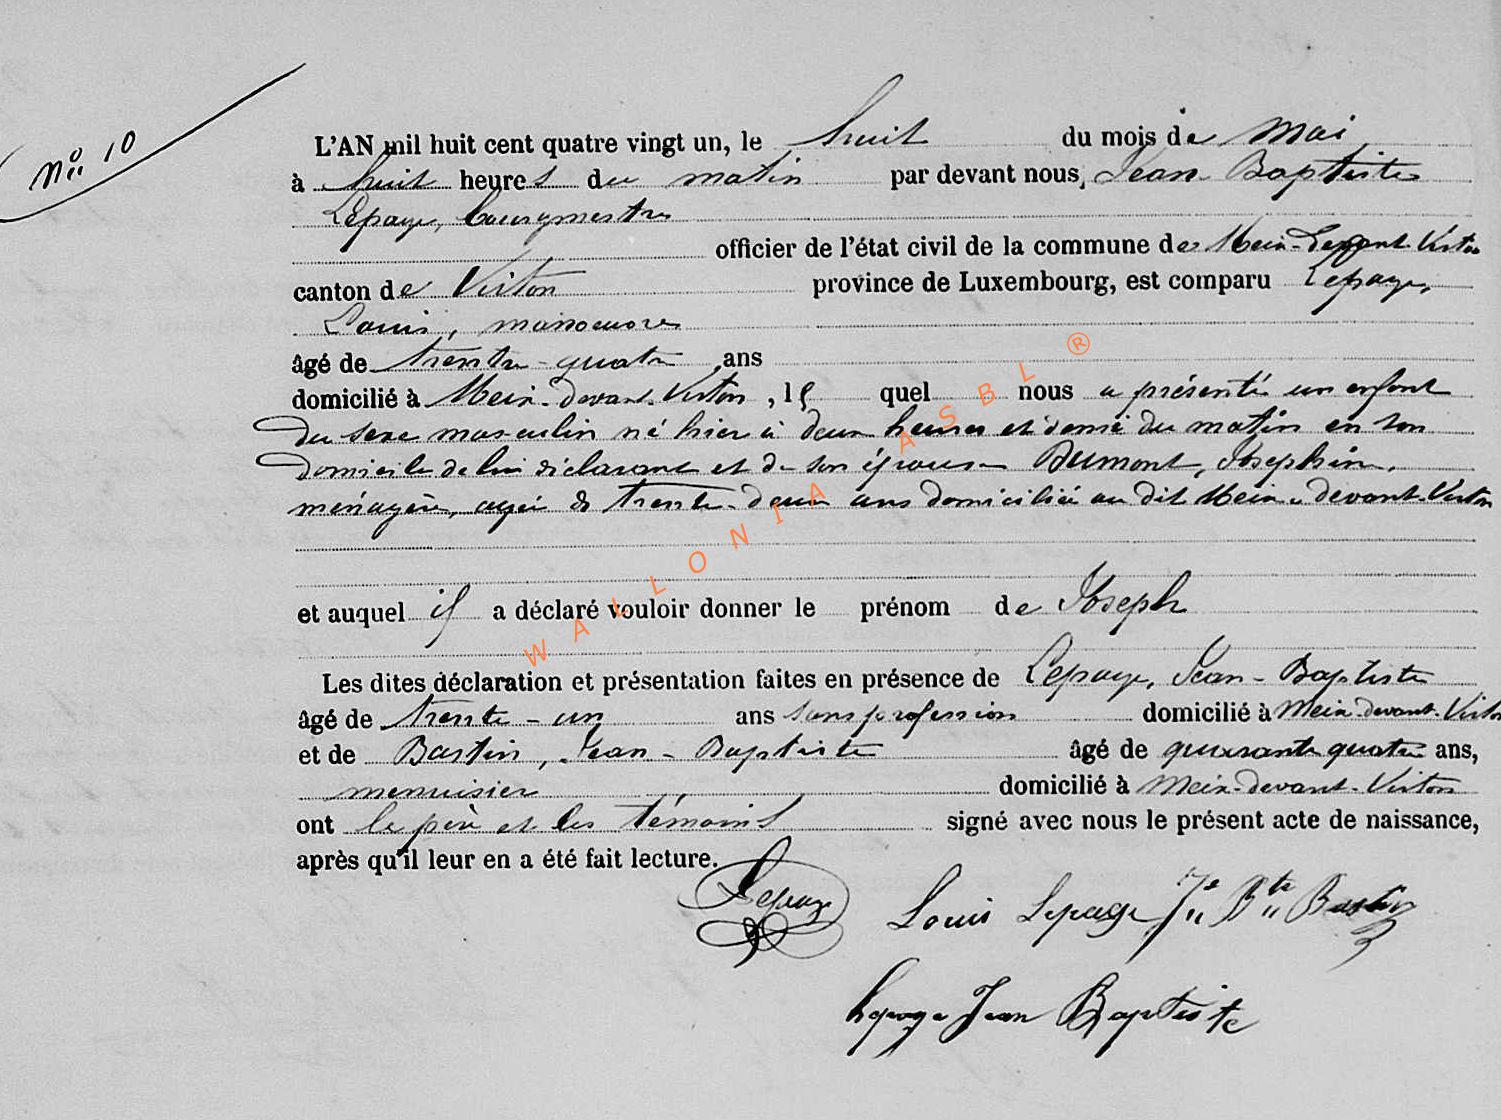 Nº 10
L'AN mil huit cent quatre vingt un, le huit du mois de Mai
à huit heures du matin par devant nous, Jean Baptiste
Lepage, bourgmestre
officier de l'état civil de la commune de Meix-devant-Virton
canton de Virton province de Luxembourg, est comparu Lepage,
Louis, manoeuvre
âgé de trente-quatre ans
domicilié à Meix-devant-Virton, lequel nous a présenté un enfant
du sexe masculin né hier à deux heures et demie du matin en son
domicile de lui déclarant et de son épouse Dumont, Joséphine,
ménagère, agée de trente-deux ans domiciliée au dit Meix-devant-Virton
et auquel il a déclaré vouloir donner le prénom de Joseph
Les dites déclaration et présentation faites en présence de Lepage, Jean-Baptiste
âgé de trente-un ans sans profession domicilié à Meix-devant-Virton
et de Bastin, Jean-Baptiste âgé de quarante quatre ans,
menuisier domicilié à Meix-devant-Virton
ont le père et les témoins signé avec nous le présent acte de naissance,
après qu'il leur en a été fait lecture.
Lepage Louis Lepage Jn Bte Bastin
Lepage Jean Baptiste
WALLONIA ASBL ®